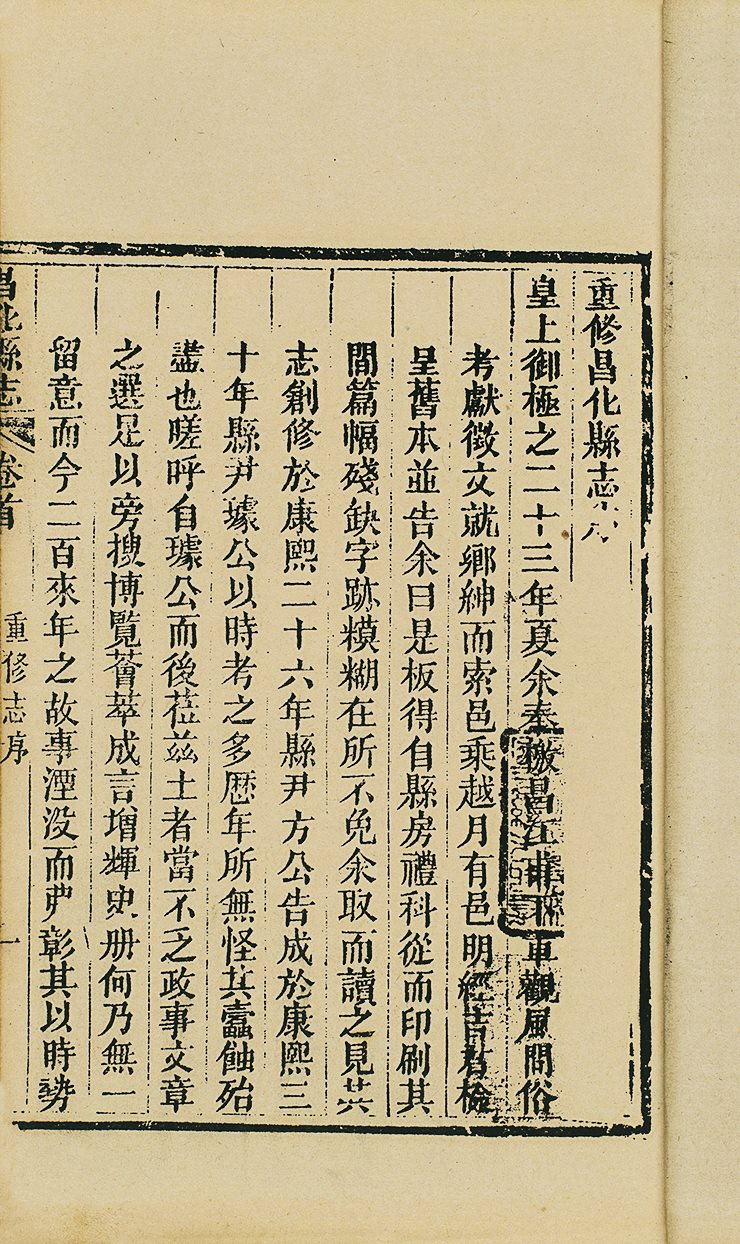 重修昌化縣志序
皇上御極之二十三年夏余奉檄昌江甫下車觀風問俗
考獻徵文就鄉紳而索邑乘越月有邑明經吉君檢
呈舊本並告余曰是板得自縣房禮科從而印刷其
間篇幅殘缺字跡糢糊在所不免余取而讀之見其
志創修於康熙二十六年縣尹方公告成於康熙三
十年縣尹璩公以時考之多歷年所無怪其蠹蝕殆
盡也嗟呼自璩公而後蒞茲土者當不乏政事文章
之選足以旁搜博覽薈萃成言增輝史册何乃無一
留意而今二百來年之故事湮没而弗彰其以時勢
昌化縣志 卷首 重修志序 一